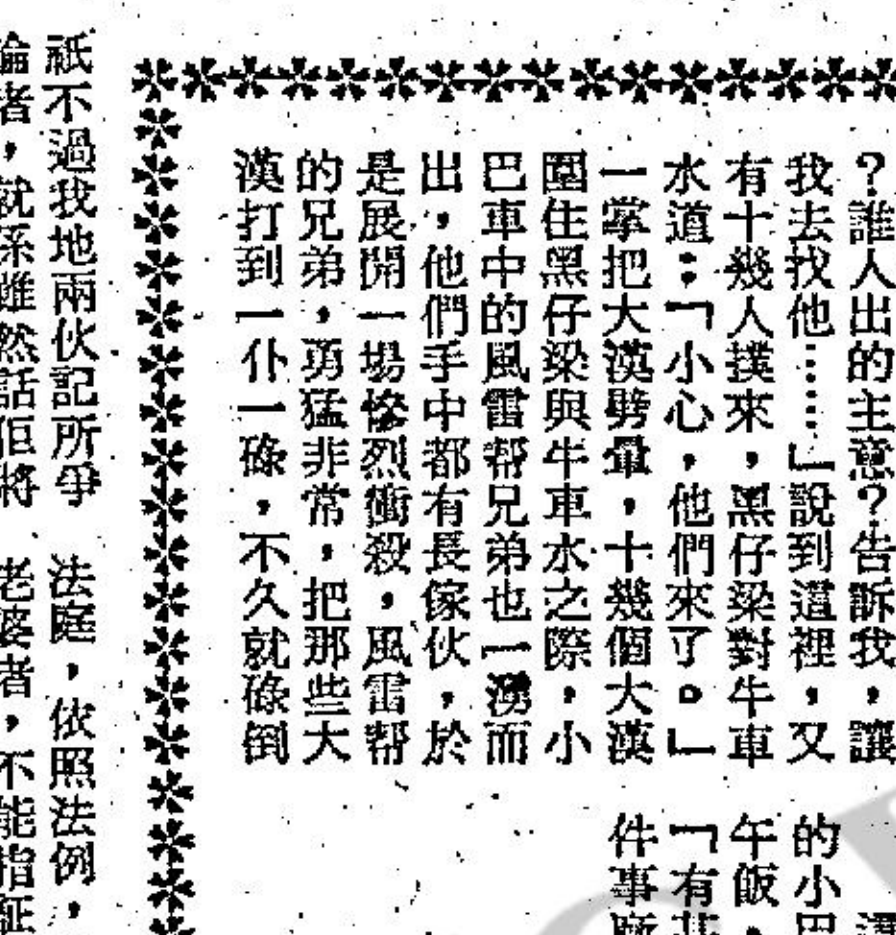 ？誰人出的主意？告訴我，讓
我去找他……」說到這裡，又
有十幾人撲來，黑仔梁對牛車
水道：「小心，他們來了。」
一掌把大漢劈暈，十幾個大漢
圍住黑仔梁與牛車水之際，小
巴車中的風雷幇兄弟也一湧而
出，他們手中都有長傢伙，於
是展開一場慘烈衝殺，風雷幇
的兄弟，勇猛非常，把那些大
漢打到一仆一碌，不久就碌倒
的小巴
午飯，
「有
件事
祇不過我地兩伙記所爭
論者，就係雖然話佢將
法庭，依照法例，
老婆者，不能指証